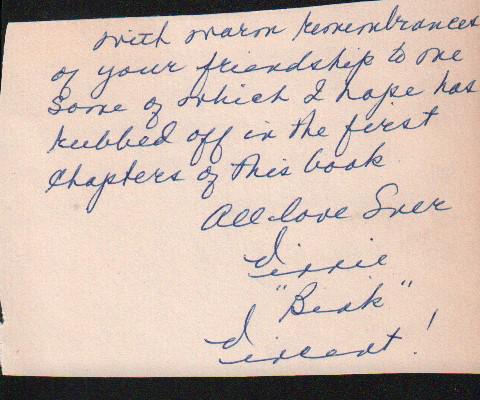 with warm remembrances
of your friendship to me
some of which I hope has
rubbed off in the first
chapters of this book
All love Ever
Vincent!